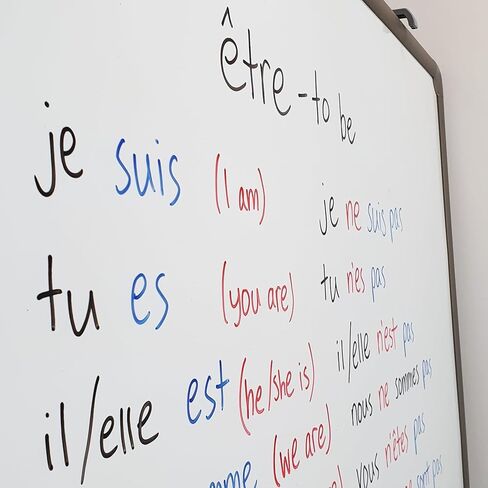 être - to be
je suis (I am)
tu es (you are)
il/elle est (he/she is)
(we are)
je ne suis pas
tu n'es pas
il/elle n'est pas
nous ne sommes pas
vous n'êtes pas
sont pas